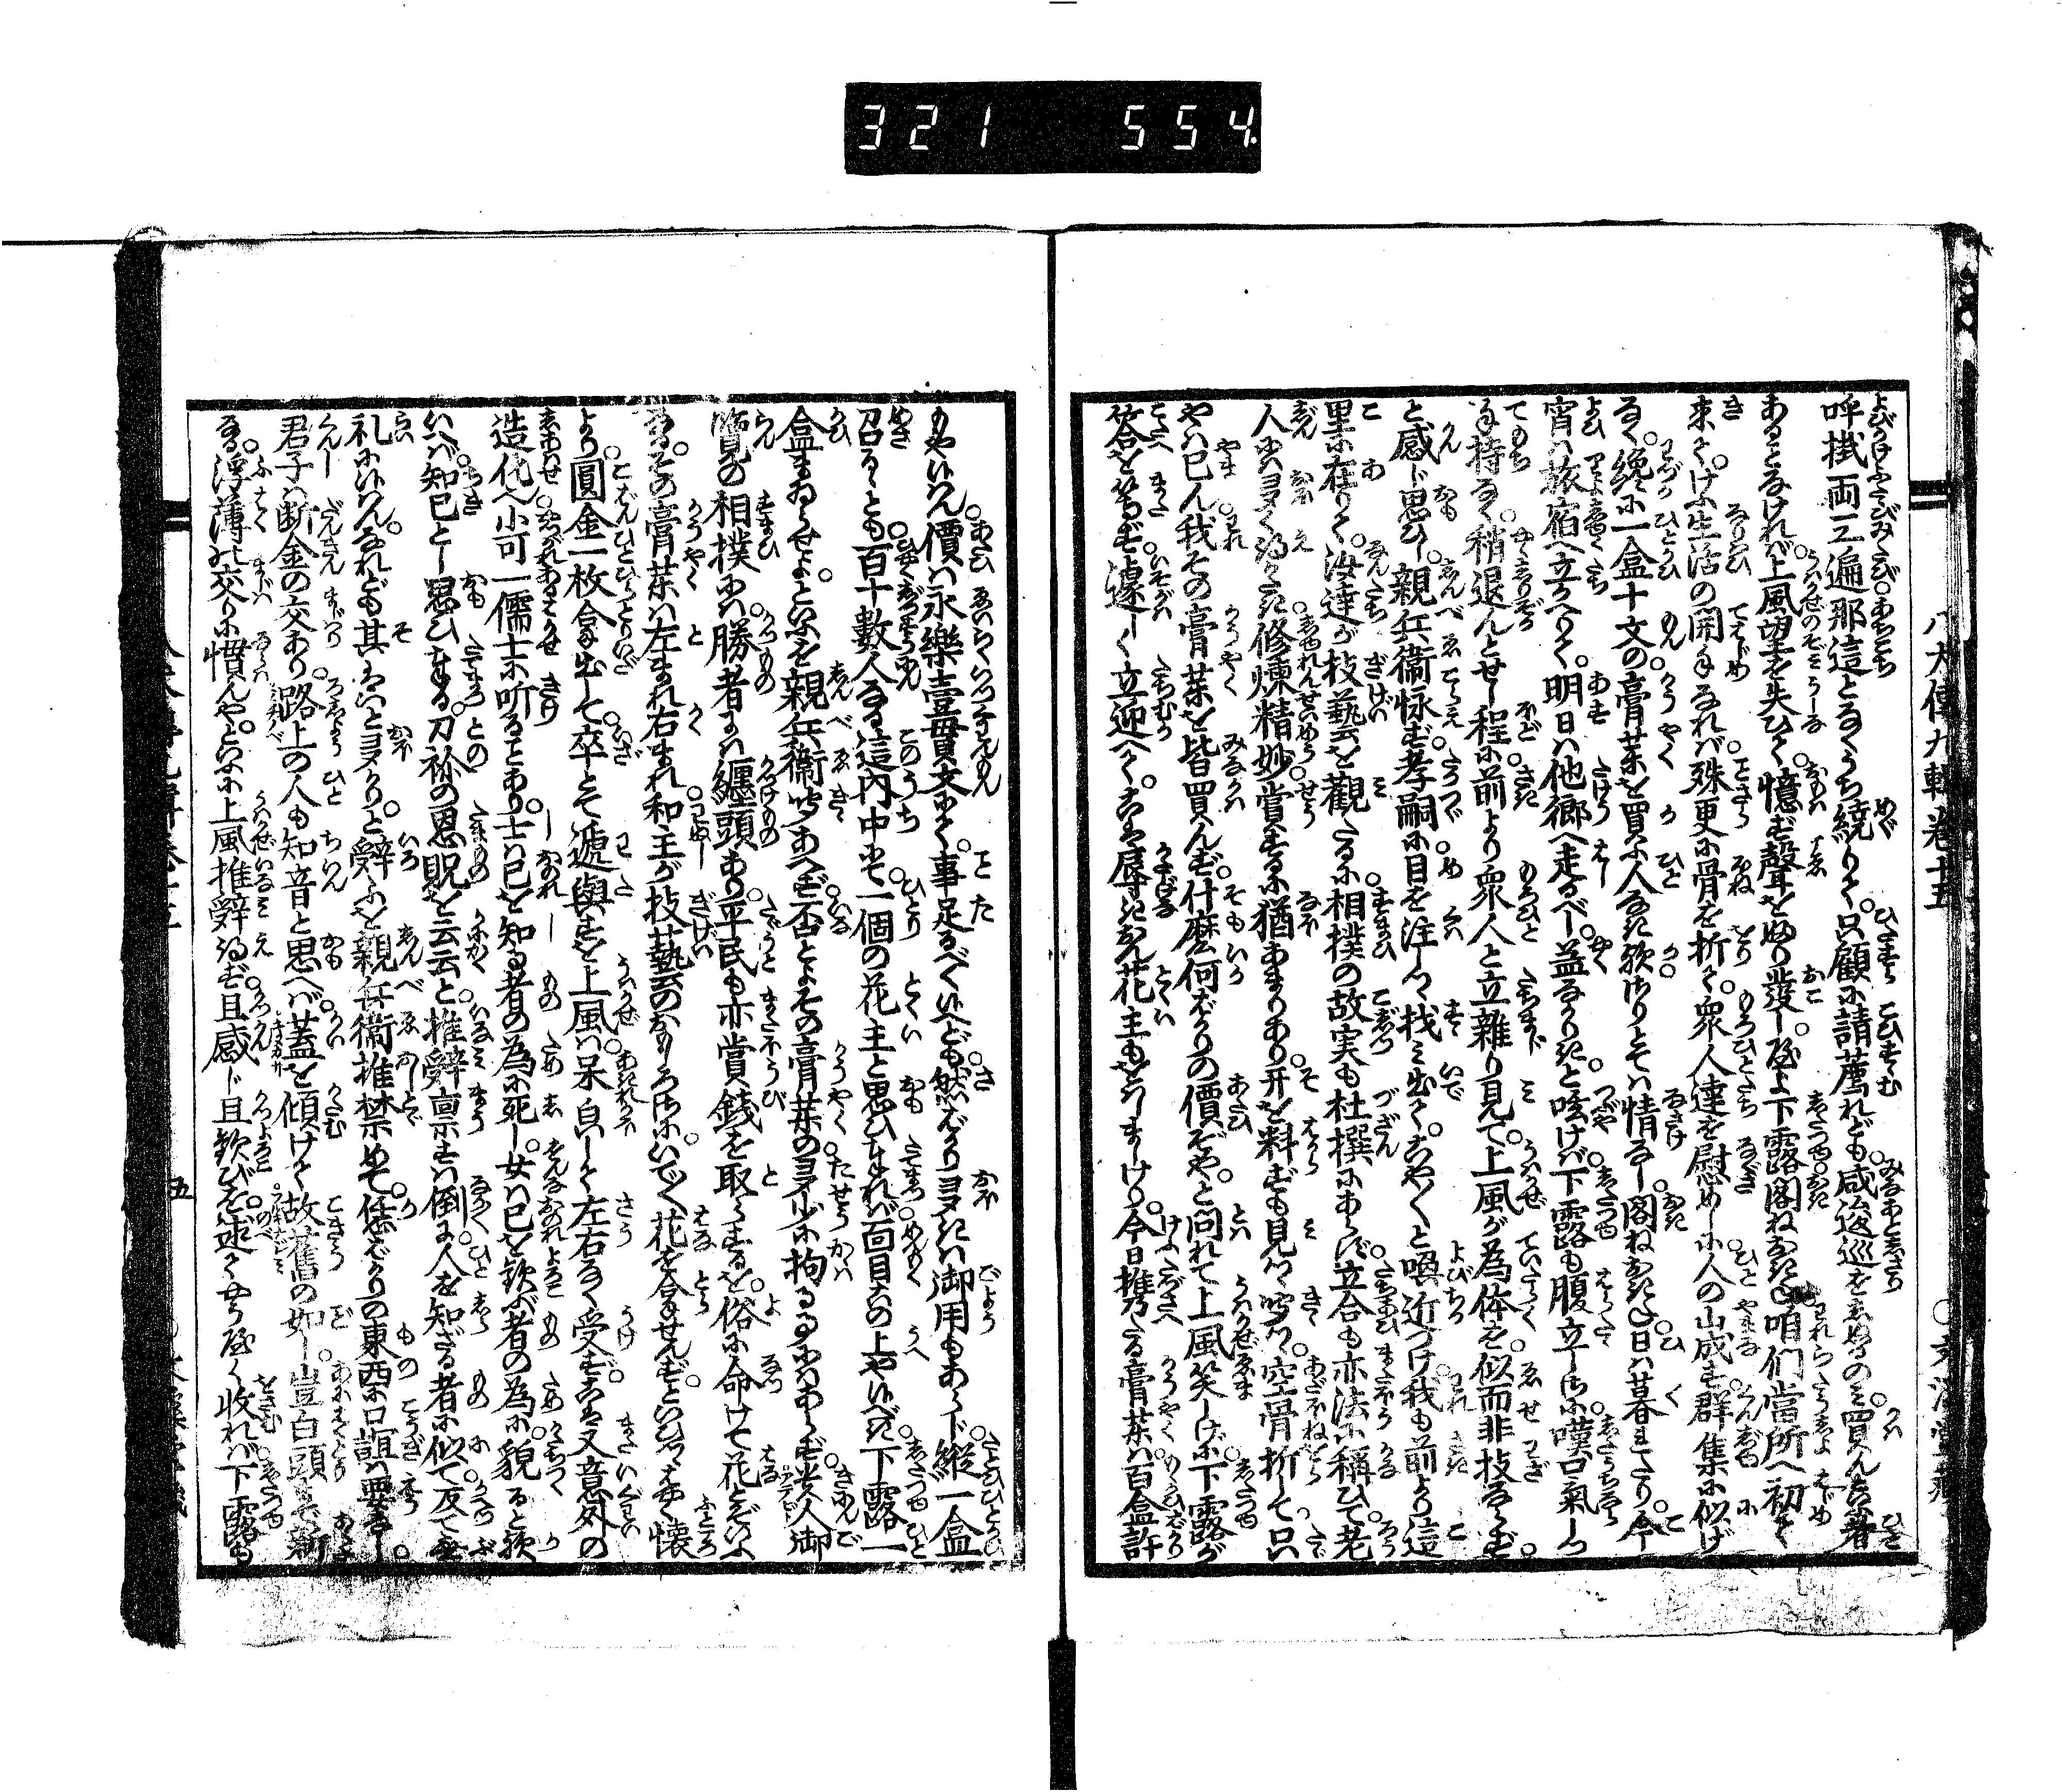 321 554
八犬傳九輯卷十五
呼掛両三遍那這となくうち繞りて。只顧に請薦れども。咸逡巡をしぬるのみ。買んといふ者
あることなければ。上風望を失ひて。憶ず聲をふり發し。やよ下露閣ねかし。咱們當所へ初て
來て。けふ生活の開手なれば。殊更に骨を折て。衆人達を慰めしに。人の山成す群集に似げ
なく。纔に一盒十文の膏藥を買ふ人なき歟。さりとては情なし。閣ねかし。日は暮なたり。今
宵は旅宿へ立かへりて。明日は他郷へ走るべし。益なかりき。と呟けば。下露も腹立しさに嘆口氣しつ
手持なく。稍退んとせし程に。前より衆人と立雜り見て。上風が為体を。似而非技ならず。
と感じ思ひし。親兵衛怺ず。孝嗣に目を注しつ找み出て。やよやよと喚近づけ。我も前より這
里に在りて。汝達が技藝を觀たるに。相撲の故実も杜撰にあらず。立合も亦法に稱ひて。老
人には多く得がたき。修煉精妙。賞するに猶あまりあり。开を料ずも見つ聞つ。空骨折して只
やは已ん。我その膏藥を皆買んず。什麽何ばかりの價ぞや。と問れて上風笑しげに。下露が
答をまたず。遽しく立迎へて。こは辱き花主もぞましましける。今日携たる膏藥は。百盒許
もやいはん。價は永樂壹貫文にて。事足るべくいへども。然ばかり多きは御用もあらじ。縦一盒
召るゝとも。百十數人なる這内中にて。一個の花主と思ひまつれば。面目この上やいはべき。下露一
盒まゐらせよ。といふを親兵衛聞あへず。否とよその膏藥の多少に拘るにはあらず。老人御
覧の相撲には。勝者には纏頭あり。平民も亦賞錢を取らするを。俗に命けて花とぞいふ
なる。その膏藥は左まれ右まれ。和主が技藝のおもしろさに。いでや花を合せんず。といひつゝはやく懐
より。圓金一枚拿出して。卒とて遞與すを上風は。呆れ自しくて左右なく受ず。こは又意外の
造化へ。小可一儒士に听ることあり。士は己を知る者の為に死し。女は己を歡ぶ者の為に貌るとか
いへば。知己とし思ひまゐる。刀祢の恩貺を云云と。推辭稟すは倒に。人を知ざる者に似て。反て無
礼にいはんなれども。其はいと多かり。と辭ふを親兵衛推禁めて。恁ばかりの東西に口誼は要なし。
君子は断金の交あり。路上の人も知音と思へば。蓋を傾けて故舊の如し。豈白頭まで新
なる。浮薄の交りに慣んや。といふに上風推辭得ず。且感じ且歡びを。述てやうやく收れば。下露も
五